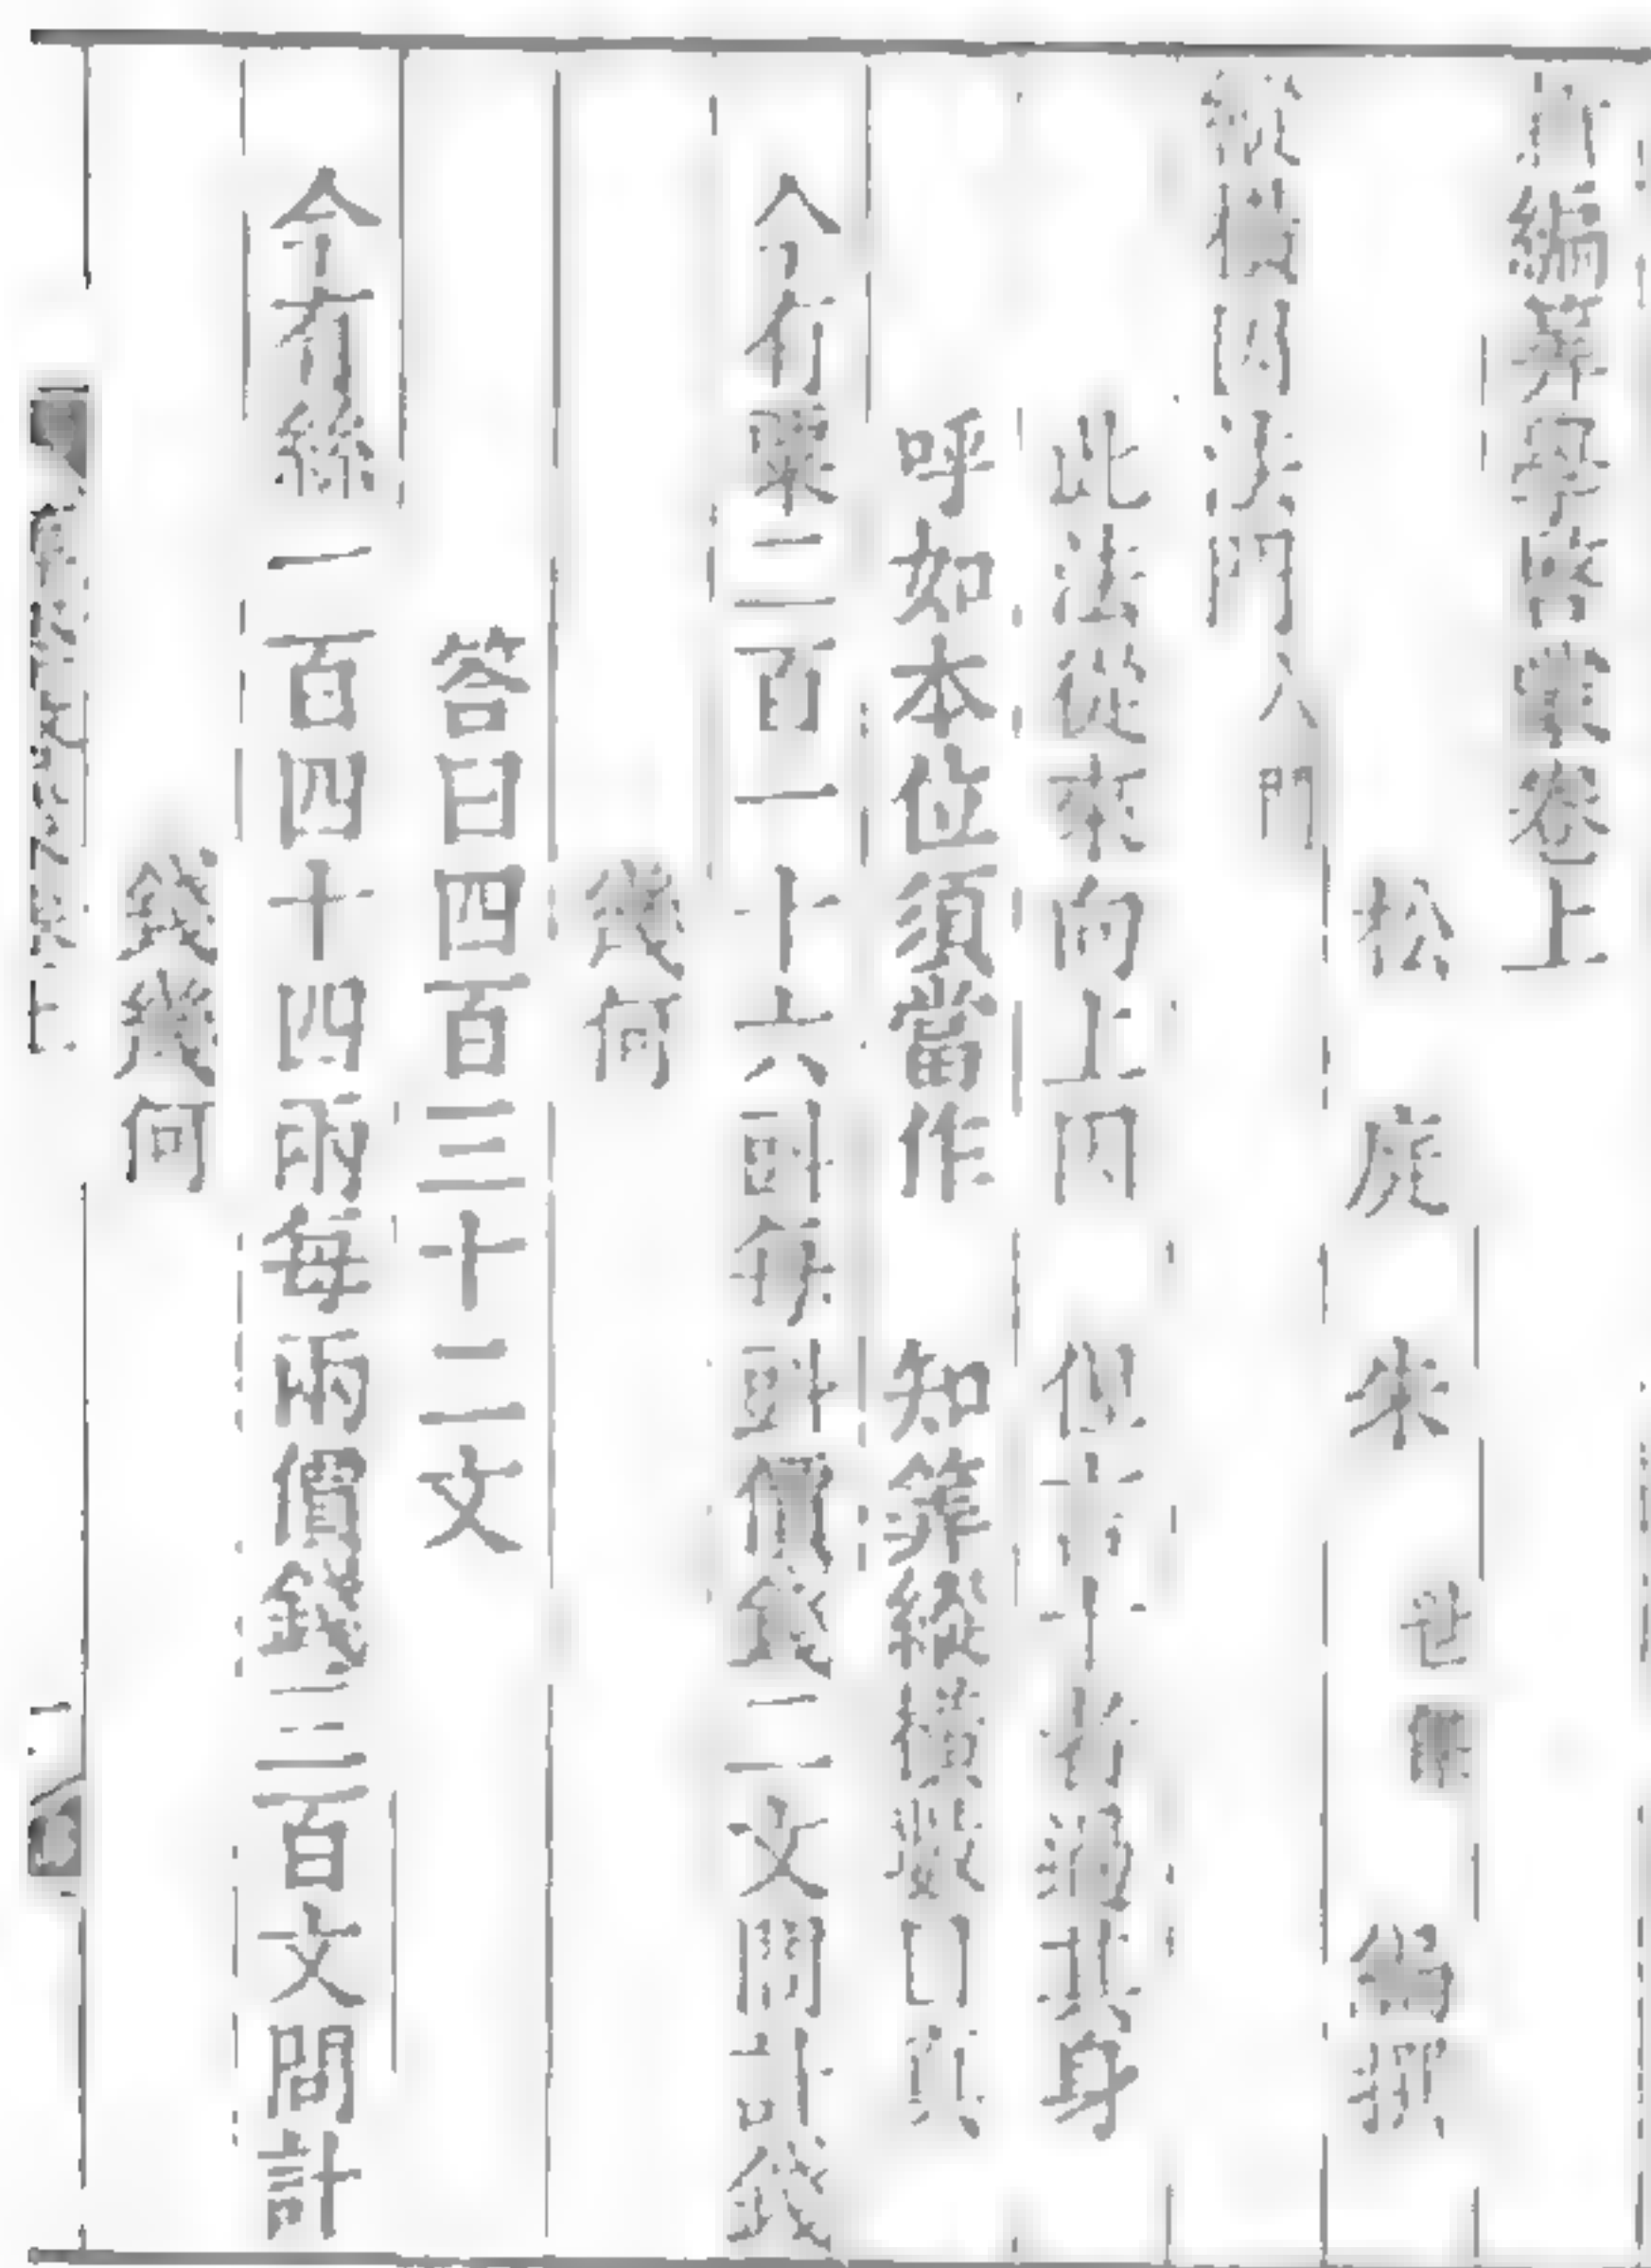 新編筭學啓蒙卷上
松庭朱世傑編撰
縱橫因法門八門
此法從來向上因 但言十者過其身
呼如本位須當作 知筭縱橫數目真
今有粟二百一十六㪷每㪷價錢二文問計錢
幾何
答曰四百三十二文
今有絲一百四十四兩每兩價錢三百文問計
錢幾何